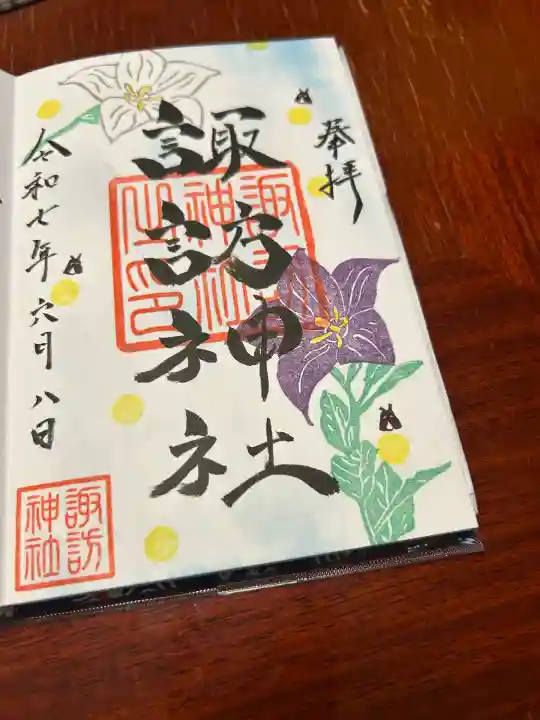 奉拝
諏訪神社
諏訪神社之印
令和七年六月八日
諏訪神社